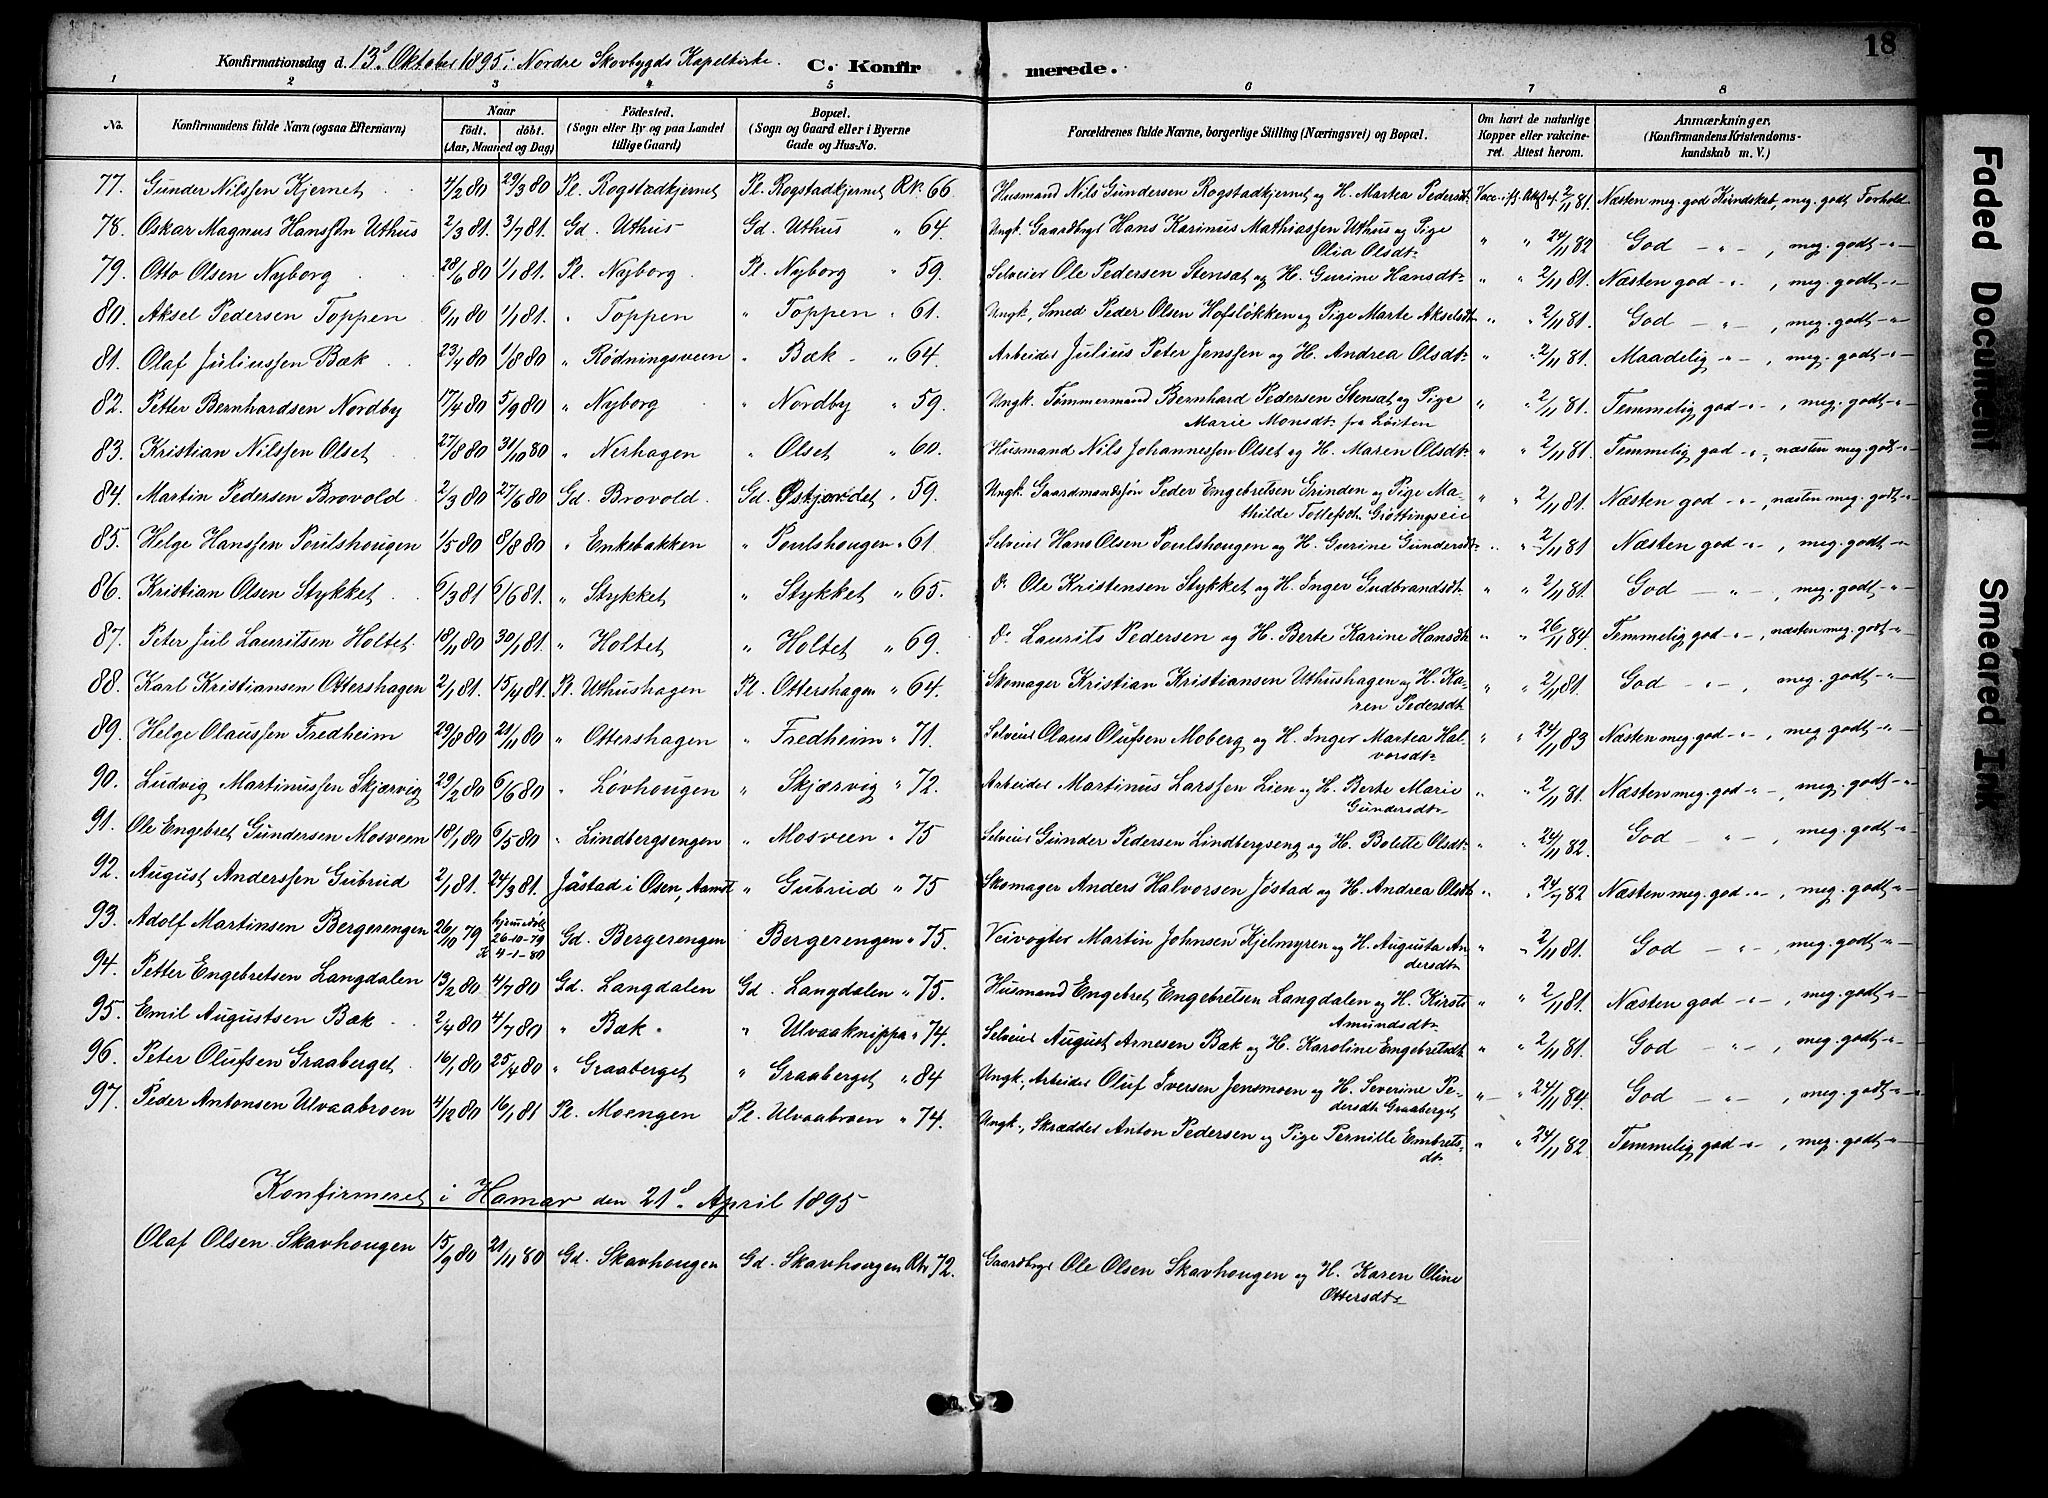 18
Konfirmationsdag d. 13d Oktober 1895 i Nordre Skovbygds Kapelkirke. C. Konfirmerede.
1 2 3 4 5 6 7 8
No. Konfirmandens fulde Navn (ogsaa Efternavn) Naar födt. döbt. (Aar, Maaned og Dag) Födested. (Sogn eller By og paa Landet tillige Gaard) Bopæl. (Sogn og Gaard eller i Byerne Gade og Hus-No. Forældrenes fulde Navne, borgerlige Stilling (Næringsvei) og Bopæl. Om havt de naturlige Kopper eller vakcineret. Attest herom. Anmærkninger. (Konfirmandens Kristendomskundskab m. V.)
77. Gunder Nilssen Kjernet 4/2 80 29/3 80 Pl. Rogstadkjernet Pl. Rogstadkjernet Rk. 66. Husmand Nils Gundersen Rogstadkjernet og H. Martea Pedersdt. Vacc. if. Attest af 2/11 81. Næsten meg. god Kundskab, meg. godt Forhold
78. Oskar Magnus Hanssøn Uthus 2/3 81. 3/7 81. Gd. Uthus Gd. Uthus " 64. Ungk. Gaardbrgs. Hans Karinus Mathiassen Uthus og Pige Olia Olsdt. " " 24/11 82 God - " - , meg. godt - " -
79. Otto Olsen Nyborg 28/6 80 1/1 81. Pl. Nyborg Pl. Nyborg " 59. Selveier Ole Pedersen Stensæt og H. Gurine Hansdt. " " 2/11 81. Næsten god - " - , meg. godt - " -
80. Aksel Pedersen Toppen 6/11 80 1/1 81. " Toppen " Toppen " 61. Ungk. Smed Peder Olsen Hofsløkken og Pige Marte Akselsdt. " " 2/11 81. God - " - , meg. godt - " -
81. Olaf Juliussen Bæk 23/4 80 1/8 80 " Rødningsveen " Bæk " 64. Arbeider Julius Peter Jenssen og H. Andrea Olsdt. " " 2/11 81. Maadelig - " - , meg. godt - " -
82. Petter Bernhardsen Nordby 17/4 80 5/9 80 " Nyborg " Nordby " 59. Ungk. Tømmermand Bernhard Pedersen Stensæt og Pige Marie Monsdt. fra Løiten " " 2/11 81. Temmelig god - " - , meg. godt - " -
83. Kristian Nilssen Olset 27/8 80 31/10 80 " Nerhagen " Olset " 60. Husmand Nils Johannessen Olset og H. Maren Olsdt. " " 2/11 81. Temmelig god - " - , næsten meg. godt - " -
84. Martin Pedersen Brovold 2/3 80 27/6 80 Gd. Brovold Gd. Østjordet " 59. Ungk. Gaardmandssøn Peder Engebretsen Grinden og Pige Mathilde Tollefsdt. Grøttingseie " " 2/11 81. Næsten god - " - , næsten meg. godt - " -
85. Helge Hanssen Poulshougen 1/5 80 8/8 80 " Enkebakken " Poulshougen " 61. Selveier Hans Olsen Poulshougen og H. Gurine Gundersdt. " " 2/11 81 Næsten god - " - , meg. godt - " -
86. Kristian Olsen Stykket 6/3 81 6/6 81. " Stykket " Stykket " 65. Do. Ole Kristensen Stykket og H. Inger Gudbrandsdt. " " 2/11 81. God - " - , meg. godt - " -
87. Peter Jul Lauritsen Holtet 18/11 80 30/1 81. " Holtet " Holtet " 69. Do. Laurits Pedersen og H. Berte Karine Hansdt. " " 26/11 84. Temmelig god - " - , næsten meg. godt - " -
88. Karl Kristiansen Ottershagen 2/1 81. 15/4 81. Pl. Uthushagen Pl. Ottershagen " 64. Skomager Kristian Kristiansen Uthushagen og H. Karen Pedersdt. " " 2/11 81. God - " - , meg. godt - " -
89. Helge Olaussen Fredheim 29/8 80 21/11 80 " Ottershagen " Fredheim " 71. Selveier Olaus Olufsen Moberg og H. Inger Martea Halvorsdt. " " 24/11 83 Næsten meg. god - " - , meg. godt - " -
90. Ludvig Martinussen Skjærvig 29/2 80 6/6 80 " Løvhougen " Skjærvig " 72. Arbeider Martinus Larssen Lien og H. Berte Marie Gundersdt. " " 2/11 81. Næsten meg. god - " - , meg. godt - " -
91. Ole Engebret Gundersen Mosveen 18/1 80 6/5 80 " Lindbergsengen " Mosveen " 75 Selveier Gunder Pedersen Lindbergseng og H. Bolette Olsdt. " " 24/11 82. God - " - , meg. godt - " -
92. August Anderssen Gubrud 2/1 81. 24/3 81. Jøstad i Osen, Aamot " Gubrud " 75 Skomager Anders Halvorsen Jøstad og H. Andrea Olsdt. " " 24/7 82 Næsten meg. god - " - , meg. godt - " -
93. Adolf Martinsen Bergerengen 26/10 79 hjemmedøbt 26-10-79 K 4-1-80 Gd. Bergerengen Bergerengen " 75. Veivogter Martin Johnsen Kjelmyren og H. Augusta Andersdt. " " 2/11 81. God - " - , meg. godt - " -
94. Petter Engebretsen Langdalen 13/2 80 4/7 80 Gd. Langdalen Gd. Langdalen " 75. Husmand Engebret Engebretsen Langdalen og H. Kirsti Amundsdt. " " 2/11 81. Næsten god - " - , meg. godt - " -
95. Emil Augustsen Bæk 2/4 80 4/7 80 " Bæk " Ulvaaknippa " 74. Selveier August Arnesen Bæk og H. Karoline Engebretsdt. " " 2/11 81. God - " - , meg. godt - " -
96. Peter Olufsen Graaberget 16/1 80 25/4 80 " Graaberget " Graaberget " 84 Ungk., Arbeider Oluf Iversen Jensmoen og H. Severine Pedersdt. Graaberget " " 24/11 84. God - " - , meg. godt - " -
97. Peder Antonsen Ulvaabroen 4/12 80 16/1 81 Pl. Moengen Pl. Ulvaabroen " 74. Ungk., Skrædder Anton Pedersen og Pige Pernille Embretsdt. " " 24/11 82 Temmelig god - " - , meg. godt - " -
Konfirmeret i Hamar den 21d April 1895
Olaf Olsen Skavhougen 15/9 80 21/11 80 Gd. Skavhougen Gd. Skavhougen Rk 72. Gaardbrgs. Ole Olsen Skavhougen og H. Karen Oline Ottersdt.
Faded Document
Smeared Ink